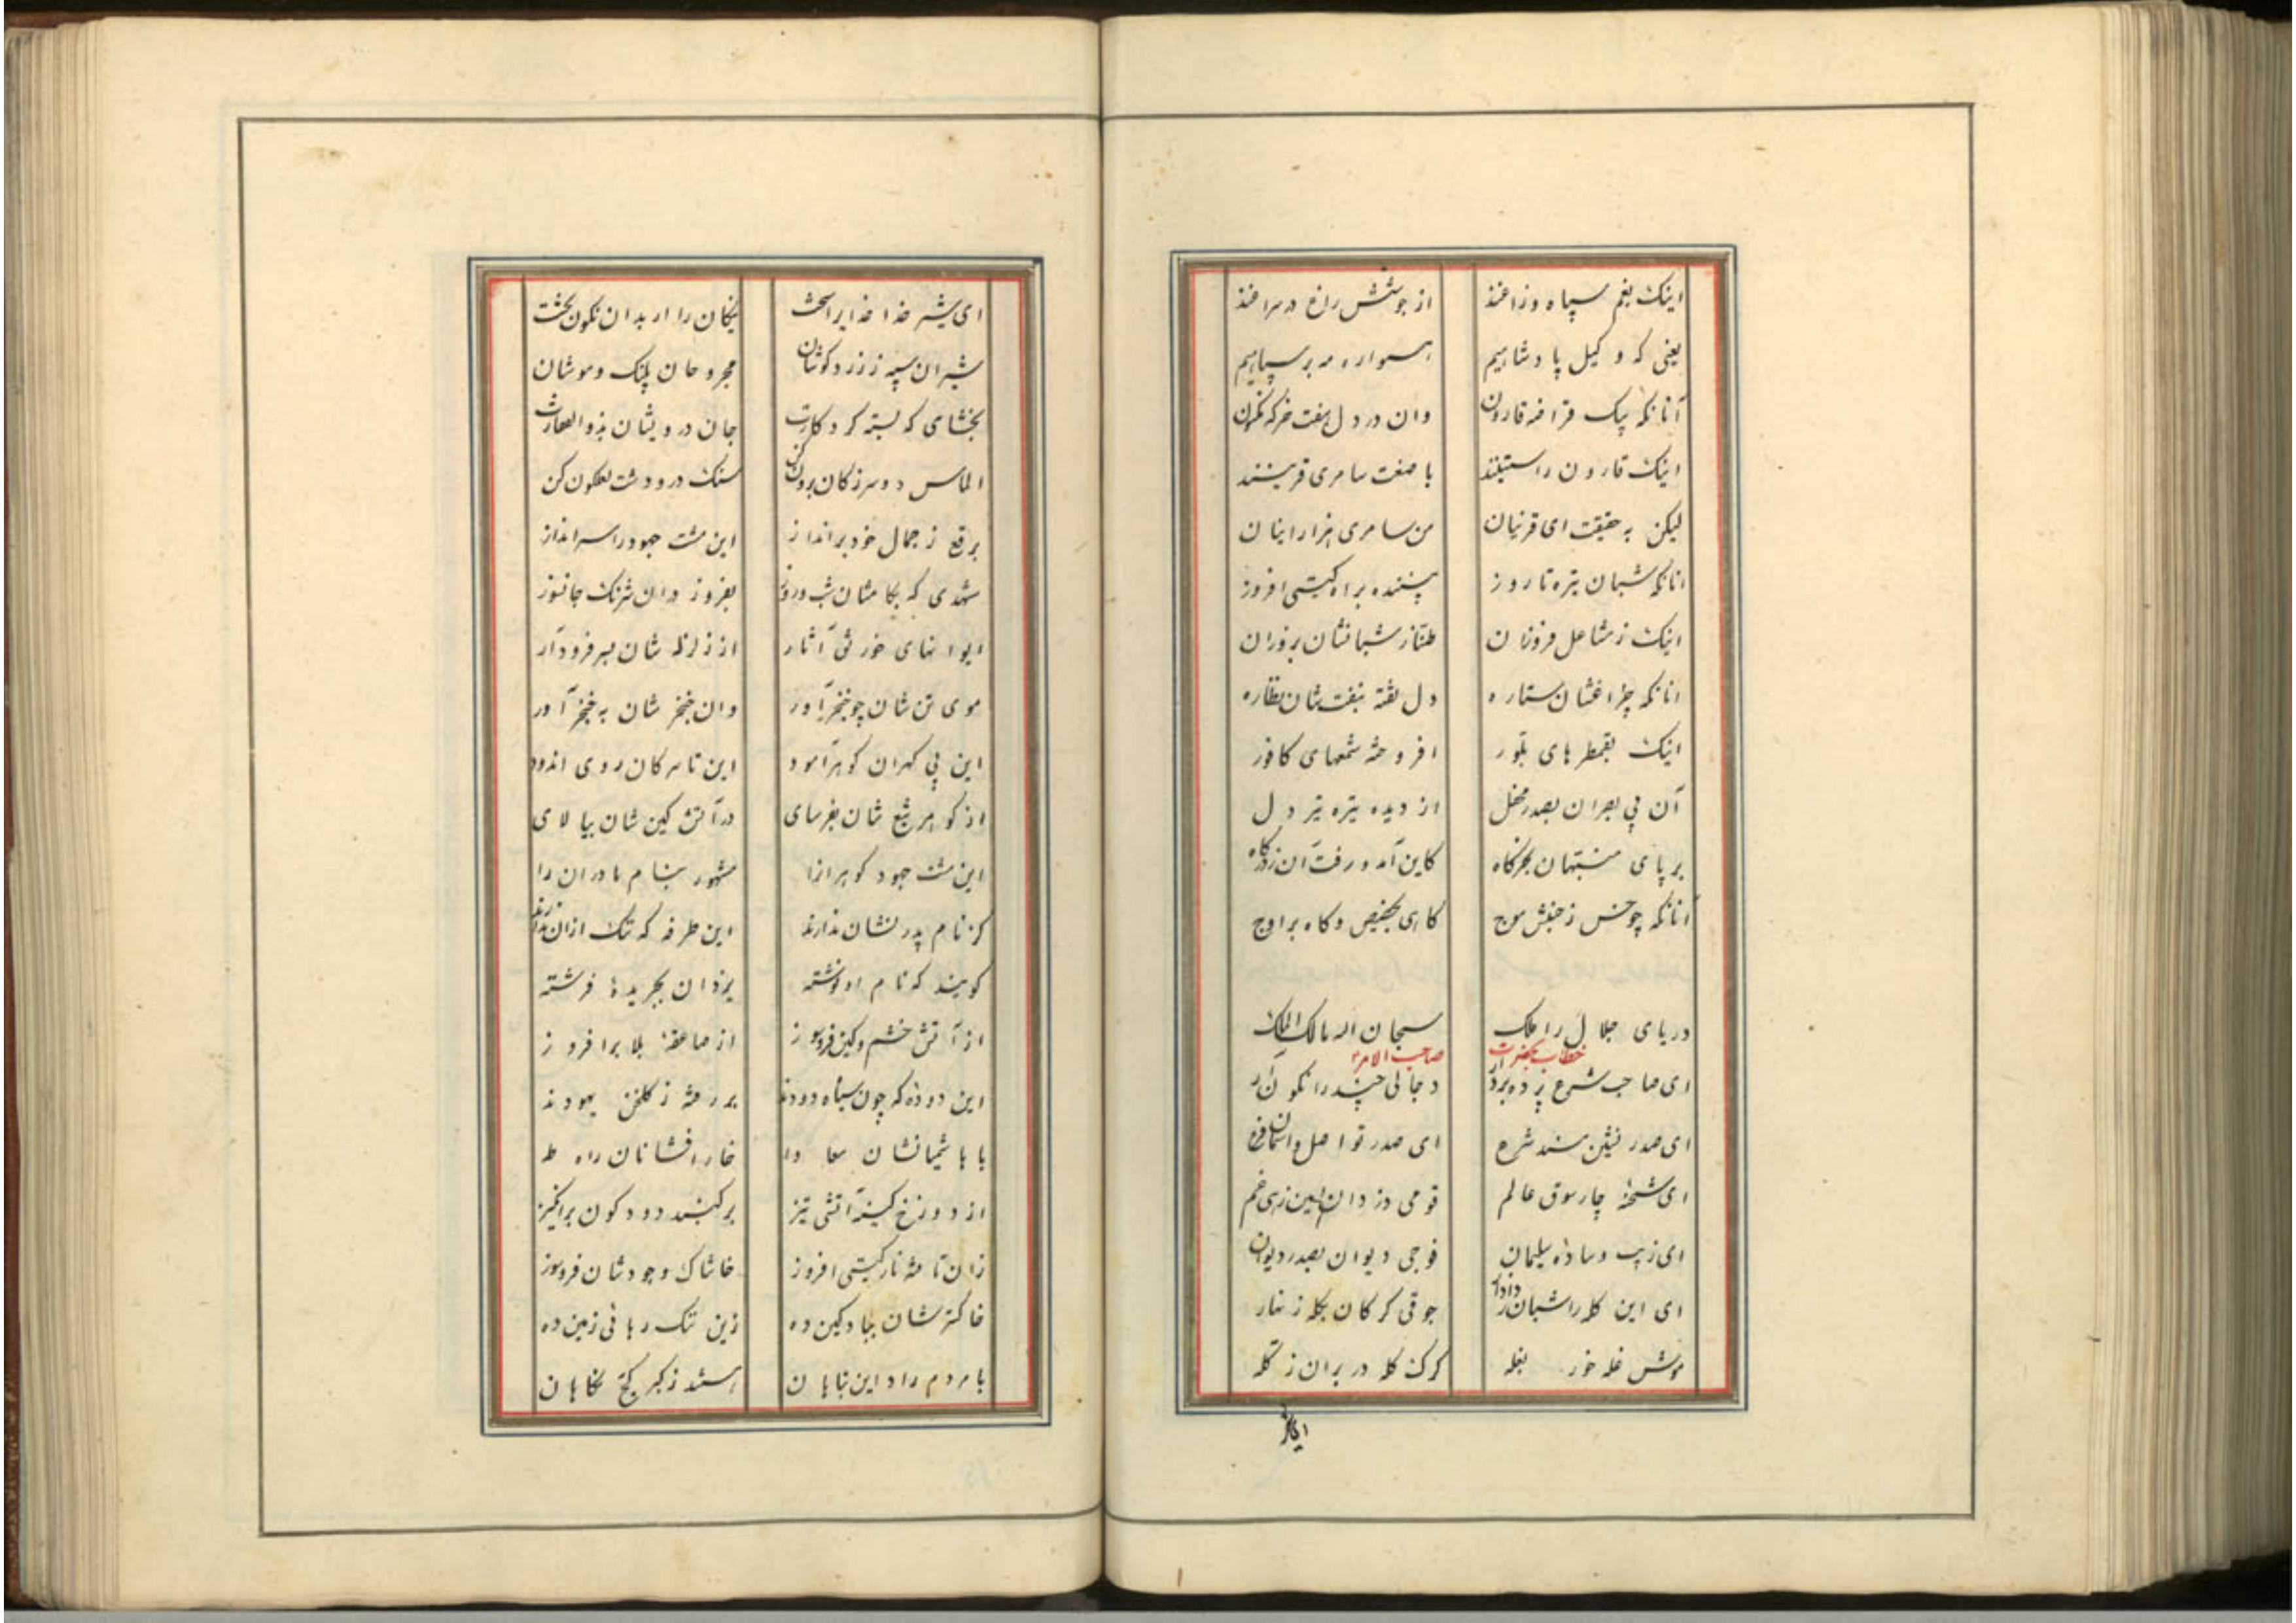 اینک بغم سپاه و زاغند از جوشش راغ در سراغند
یعنی که وکیل پادشاهیم همواره مدبر سپاهیم
آنانکه پیک قرافه قارون وان در دل هفت خرکه نکون
اینک قارون راستینند با صفت سامری قرینند
لیکن به حقیقت ای قرنیان من سامری هزار اینان
انانکه شبان تیره تا روز پسنده براه کیتی افروز
اینک ز مشاعل فروزان طناز شبانشان بروزان
انانکه چراغشان ستاره دل تفته بنفت شان نظاره
اینک بقمطرهای بلور افروخته شمعهای کافور
آن بی بصران بصدر محفل از دیده تیره تیره دل
بر پای منتبهان بجرکاه کاین آمد و رفت آن ز درکاه
آنانکه چو خس ز جنبش موج کاهی بحضیض و کاه بر اوج
دریای جلال را ملک سبحان اله مالک الملک
خطاب بحضرت صاحب الامر
ای صاحب شرع پرده بردار دجالی چند را نکون آر
ای صدر نشین مسند شرع ای صدر تو اصل و اسمان فرع
ای شحنهٔ چارسوق عالم قومی دزدان امین زهی غم
ای زیب وساده سلیمان فوجی دیوان بصدر دیوان
ای این کله را شبان دادار جوقی کرکان بکله زنهار
موش غله خور بغله کرک کله در بران ز کله
ایکار
ای شیر خدا خدایرا سخت نیکان را از بدان نکون بخت
شیران سیه ز زرد کوشان مجروحان پلنک و موشان
بخشای که بسته کرد کارت جان درویشان بذوالفقارت
الماس دو سر ز کان برون کن سنک در و دشت لعلکون کن
برقع ز جمال خود برانداز این مشت جهود را سر انداز
شهدی که بکامشان شب و روز بفروز دران شرنک جانسوز
ایوانهای خورنق آثار از زلزله شان بسر فرود آر
موی تن شان چو خنجر آور وان خنجر شان به خنجر آور
این بی کهران کوهر آمود این تا سرکان روی اندود
از کوهر تیغ شان بفرسای در آتش کین شان بیالای
این مشت جهود کوهران را مشهور بنام مادران را
کز نام پدر نشان ندارند این طرفه که ننک ازان ندارند
کویند که نام او نوشته یزدان بجریدهٔ فرشته
از آتش خشم و کین فروسوز از صاعقهٔ بلا برافروز
این دوده که چون سیاه دودند بر رفته ز کلخن یهودند
از دوزخ کینه آتشی تیز برکینه دود کون برانکیز
زان تافته نار کیتی افروز خاشاک وجودشان فروسوز
خاکسترشان بباد کین ده زین ننک رهائی زمین ده
با مردم راد این تباهان هستند ز کبر کج نکاهان